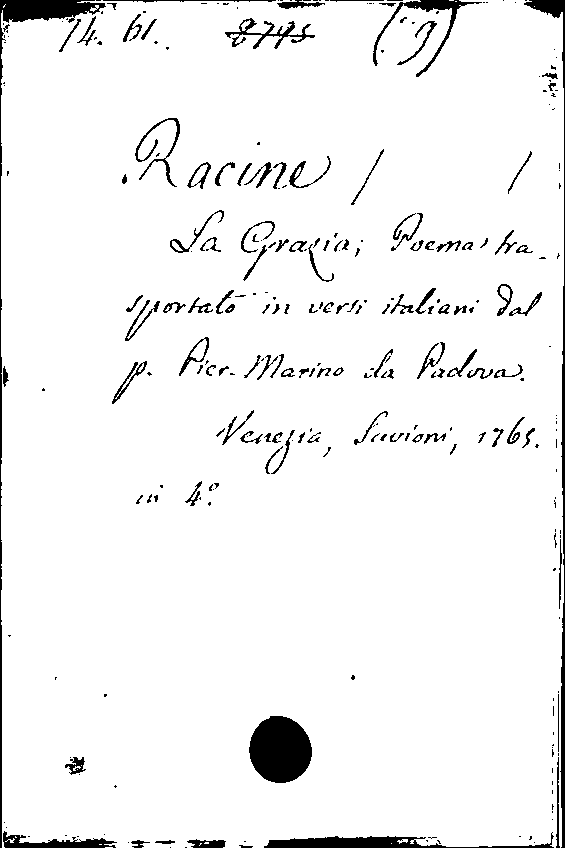 74. 61. 8795 (9)
Racine / /
La Grazia; Poema tra-
sportato in versi italiani dal
p. Pier-Marino da Padova.
Venezia, Savioni, 1765.
in 4°.